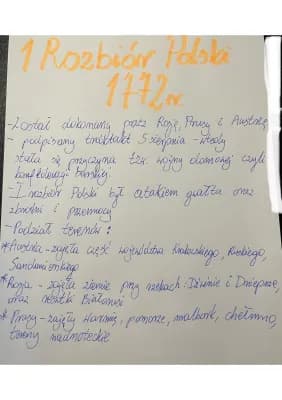 1 Rozbiór Polski
1772r.
- Został dokonany przez Rosję, Prusy i Austrię,
- podpisany traktat 5 sierpnia - wtedy
stała się przyczyną tzw. wojny domowej czyli
konfederacji barskiej.
- I rozbiór Polski był atakiem gwałtu oraz
zbrodni i przemocy
- Podział terenów:
* Austria - zajęła część województwa Krakowskiego, Ruskiego,
Sandomierskiego
* Rosja - zajęła ziemie przy rzekach: Dźwinie i Dnieprze,
oraz Białorusi
* Prusy - zajęły Warmię, pomorze, malbork, chełmno,
tereny nadnoteckie